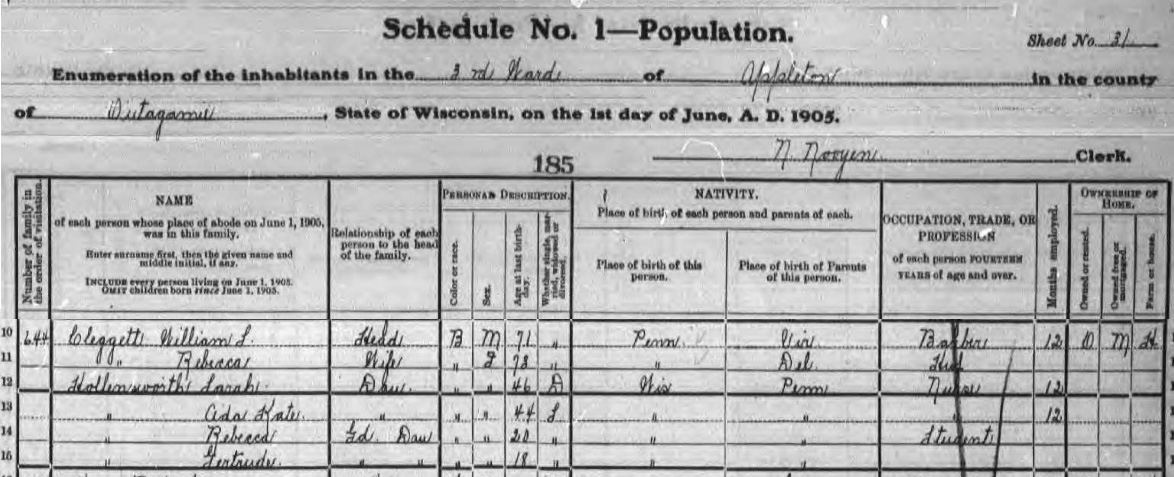 Schedule No. 1—Population.
Sheet No. 31
Enumeration of the inhabitants in the 3rd Ward of Appleton in the county
of Outagamie, State of Wisconsin, on the 1st day of June, A. D. 1905.
185 N. Clerk.
Number of family in the order of visitation.
NAME
of each person whose place of abode on June 1, 1905, was in this family.
Enter surname first, then the given name and middle initial, if any.
INCLUDE every person living on June 1, 1905.
OMIT children born since June 1, 1905.
Relationship of each person to the head of the family.
PERSONAL DESCRIPTION.
Color or race.
Sex.
Age at last birthday.
Whether single, married, widowed or divorced.
NATIVITY.
Place of birth of each person and parents of each.
Place of birth of this person.
Place of birth of Parents of this person.
OCCUPATION, TRADE, OR PROFESSION
of each person FOURTEEN YEARS of age and over.
Months employed.
OWNERSHIP OF HOME.
Owned or rented.
Owned free or mortgaged.
Farm or house.
10 644 Cleggett William L. Head B M 71 " Penn Vir Barber 12 O M H
11 " Rebecca Wife " F 73 " " Del
12 Hollensworth Sarah Dau " " 46 D Wis Penn Nurse 12
13 " Ada Kate " " " 44 S " " " 12
14 " Rebecca Gd. Dau " " 20 " " " Student
15 " Gertrude " " " " 18 " " "